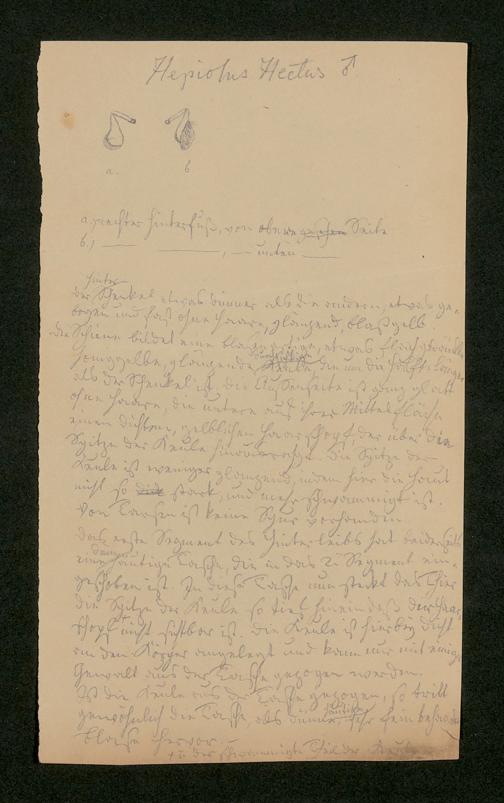 Hepiolus Hectus ♂
a. b
a. rechter Hinterfuß, von obere gesehen Seite
b.) — — , — unten —
Hinter
der Schenkel etwas dünner als die andern, etwas ge-
bogen und fast ohne Haare, glänzend, blaßgelb
die Schiene bildet eine blasenartige, etwas flach gedrückte
honiggelbe, glänzende, Keule, die um die Hälfte länger
als der Schenkel ist. die Außenseite ist ganz glatt
ohne Haare, die untere aus ihrer Mittelfläche
einen dichten, gelblichen Haarschopf der über die
Spitze der Keule hinausragt. Die Spitze der
Keule ist weniger glänzend, indem hier die Haut
nicht so dick stark, und mehr schwammigt ist.
Von Tarsen ist keine Spur vorhanden.
das erste Segment des Hinterleibs hat beiderseits
eine häutige Tasche, die in das 2. Segment ein-
geschoben ist. In diese Tasche nun steckt das Thier
die Spitze der Keule so tief hinein daß der Haar-
schopf nicht sichtbar ist. die Keule ist hierbey dicht
an den Körper angelegt und kann nur mit einiger
Gewalt aus der Tasche gezogen werden.
Ist die Keule aus der Tasche gezogen, so tritt
gewöhnlich die Tasche, als dünne, häutige sehr fein behaarte
Blase hervor —
u der schwammigte Theil der Keule